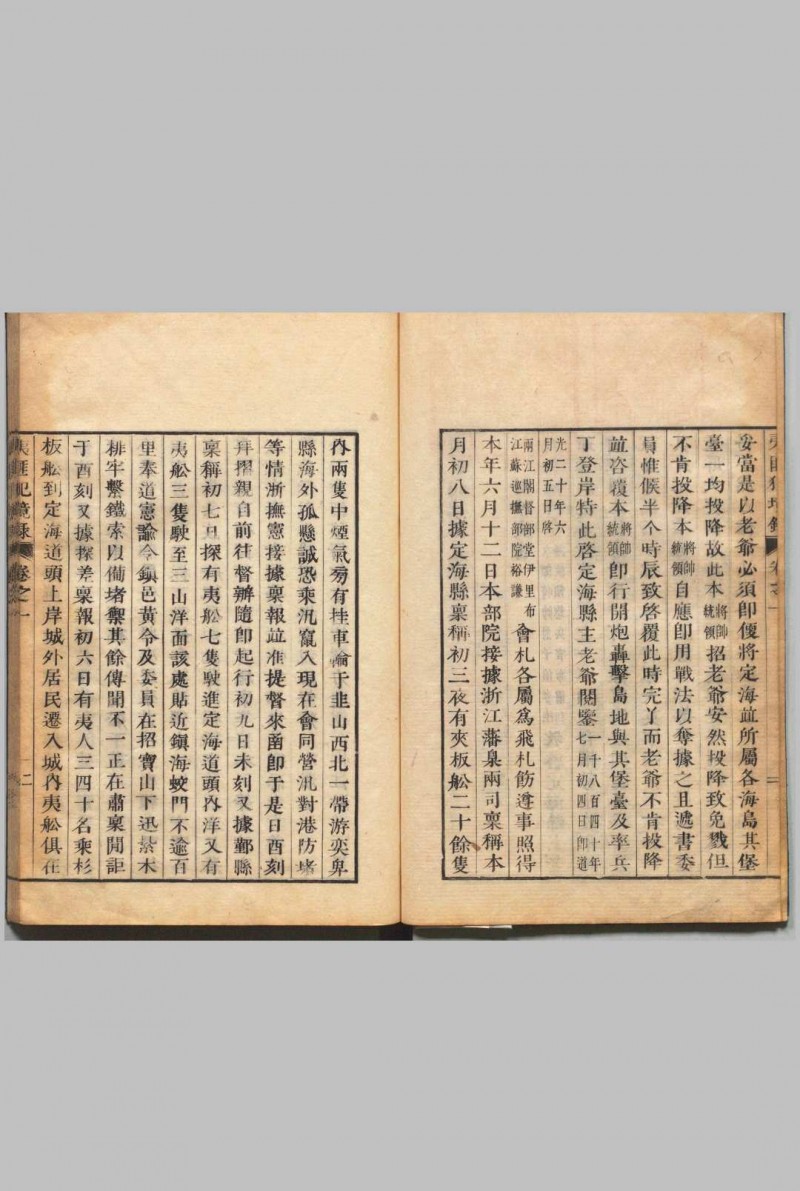 妥當是以老爺必須即便將定海並所屬各海島其堡
臺一均投降故此本將帥統領招老爺安然投降致免戮但
不肯投降本將帥統領自應即用戰法以奪據之且遞書委
員惟候半个時辰致啓覆此時完了而老爺不肯投降
並咨覆本將帥統領即行開炮轟擊島地與其堡臺及率兵
丁登岸特此啓定海縣主老爺閣鑒一千八百四十年七月初四日即道
光二十年六月初五日啓
兩江閣督部堂伊里布江蘇巡撫部院裕謙會札各屬爲飛札飭遵事照得
本年六月十二日本部院接據浙江藩臬兩司稟稱本
月初八日據定海縣稟稱初三夜有夾板舩二十餘隻
內兩隻中煙氣旁有桂車輪于韭山西北一帶游奕卑
縣海外孤懸誠恐乘汛竄入現在會同營汛對港防堵
等情浙撫憲接據稟報並准提督來函即于是日酉刻
拜摺親自前往督辦隨即起行初九日未刻又據鄞縣
稟稱初七日探有夷舩七隻駛進定海道頭內洋又有
夷舩三隻駛至三山洋面該處貼近鎮海蛟門不逾百
里奉道憲諭令鎮邑黃令及委員在招寶山下迅紮木
排牢繫鐵索以備堵禦其餘傳聞不一正在肅稟間詎
于酉刻又據探差稟報初六日有夷人三四十名乘杉
板舩到定海道頭上岸城外居民遷入城內夷舩俱在
夷匪犯境錄 卷之一 二